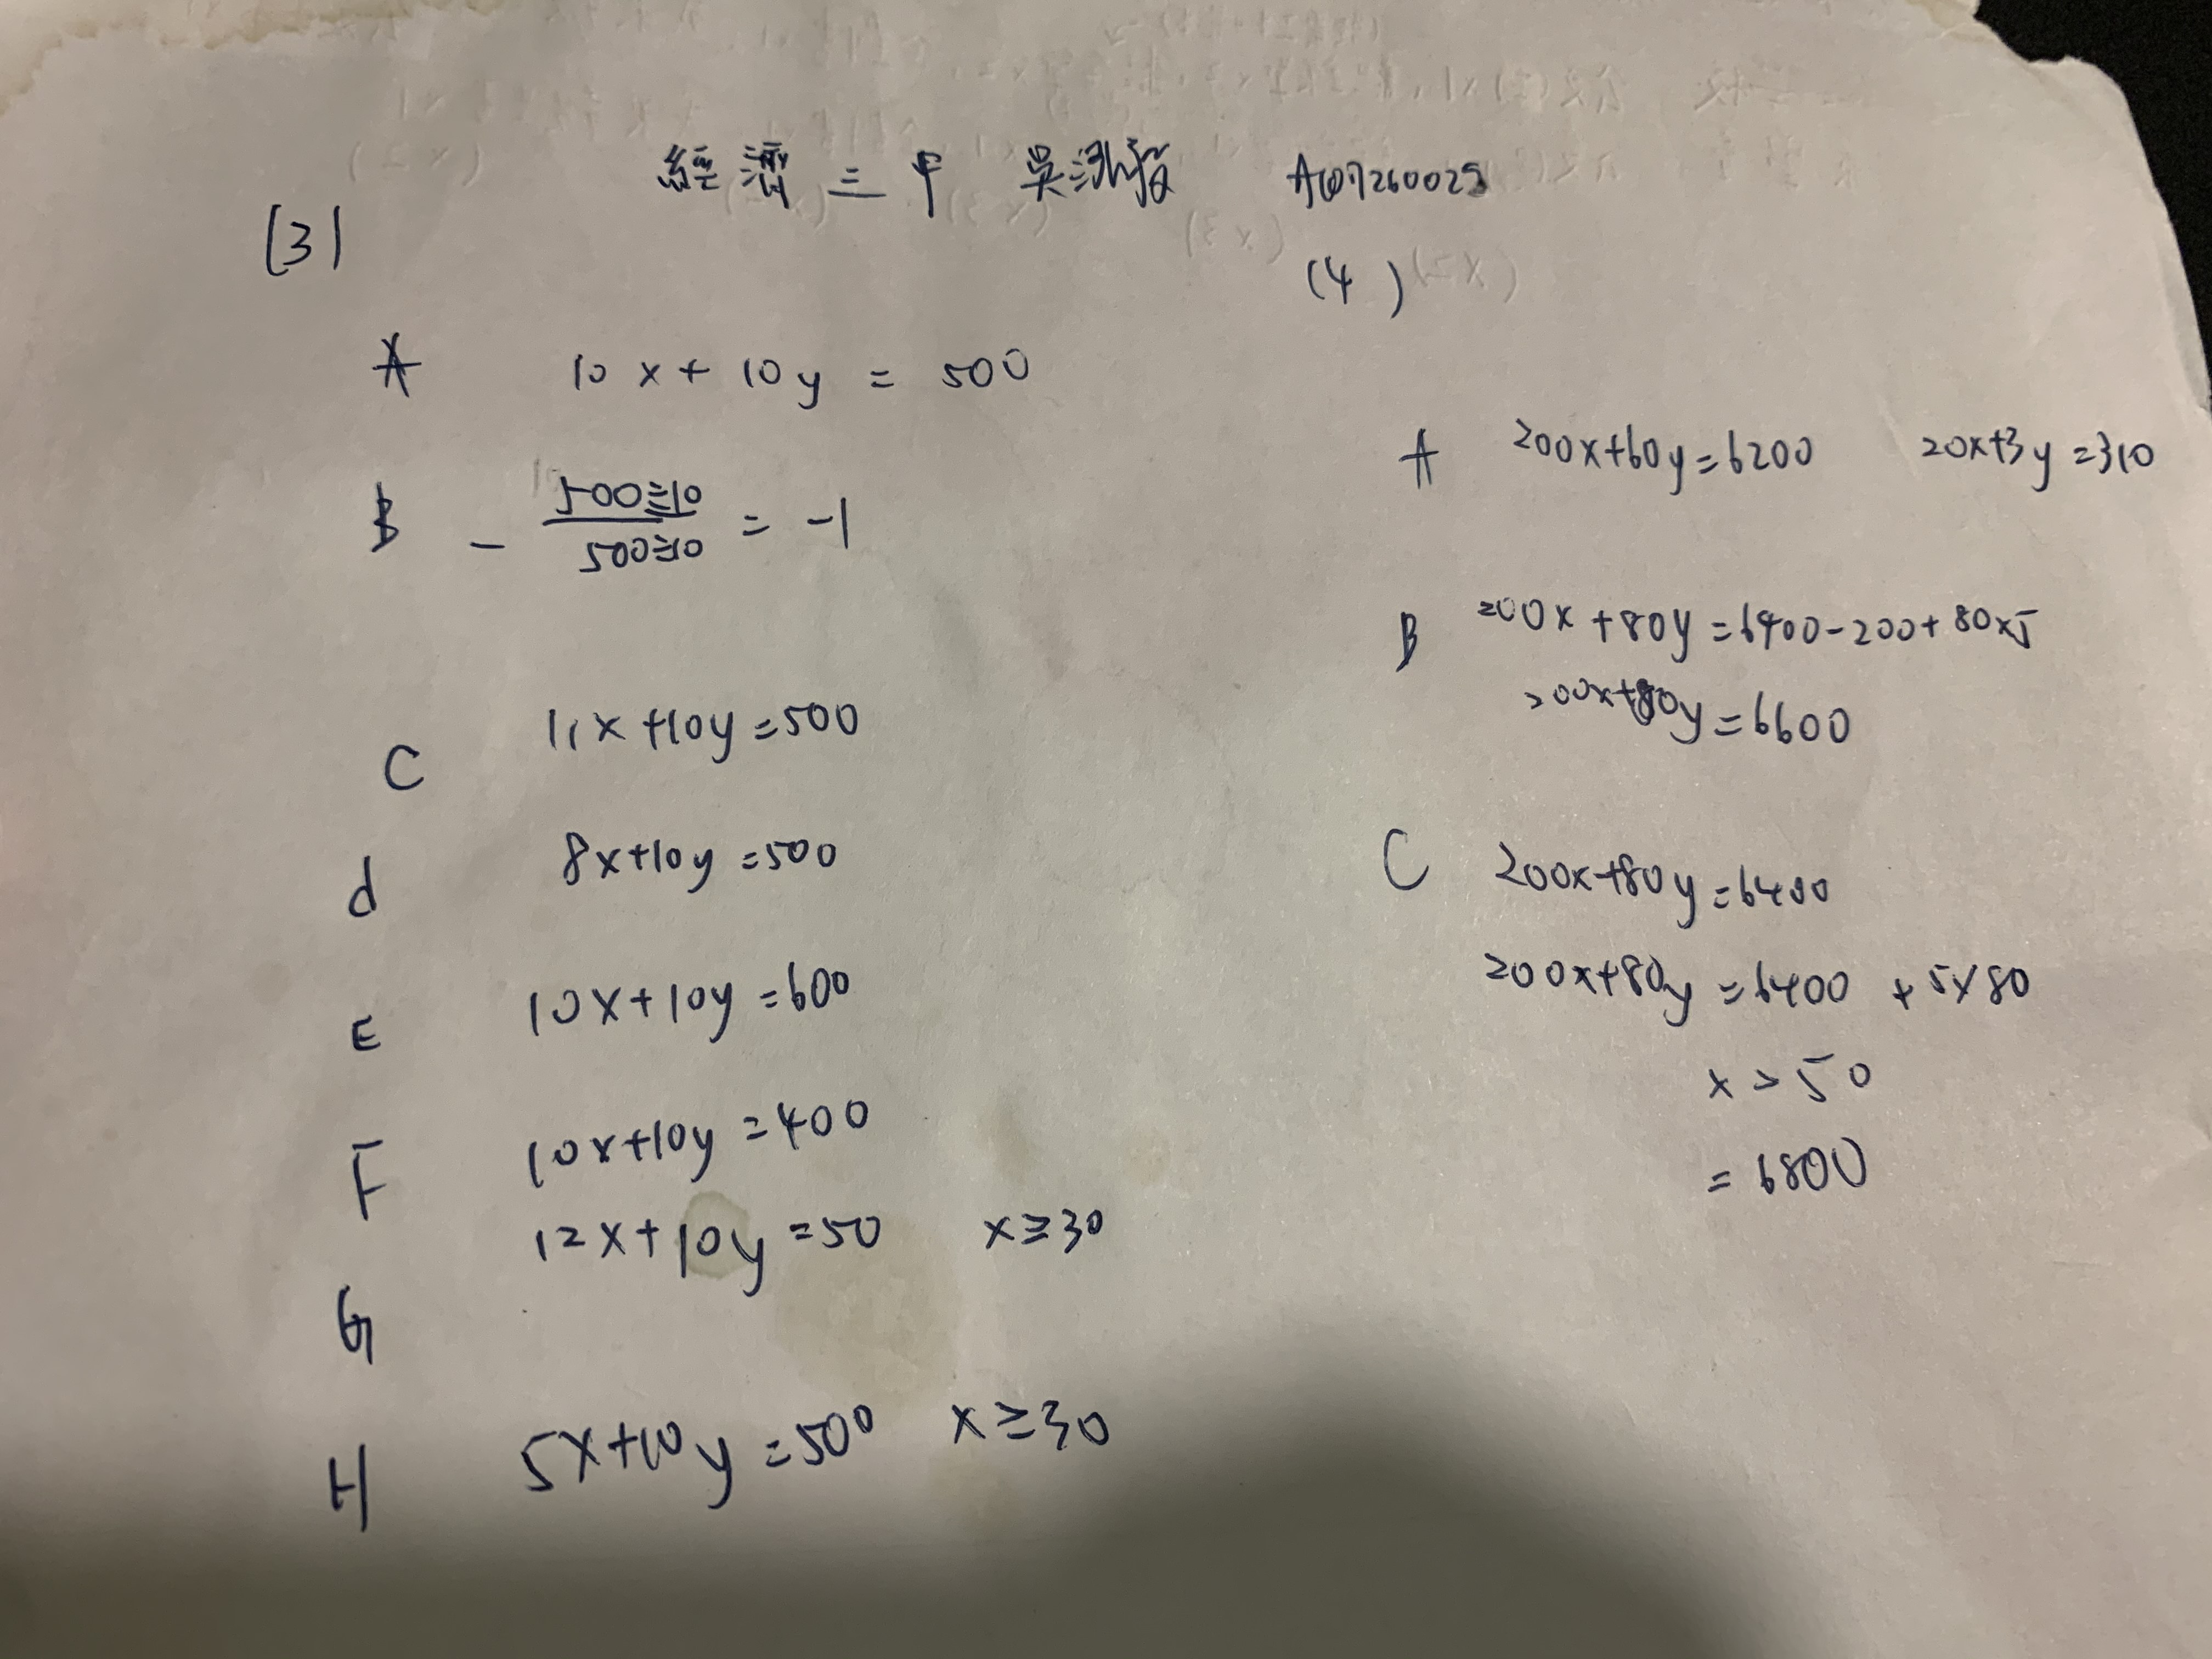 經濟二甲 吳 A107260025
(3)
A 10x+10y=500
B - 500÷10 / 500÷10 = -1
C 11x+10y=500
D 8x+10y=500
E 10x+10y=600
F 10x+10y=400
G 12x+10y=500 x≥30
H 5x+10y=500 x≥30
(4)
A 200x+60y=6200 20x+3y=310
B 200x+80y=6400-200+80x5
200x+80y=6600
C 200x+80y=6400
200x+80y=6400+5x80
x<50
=6800